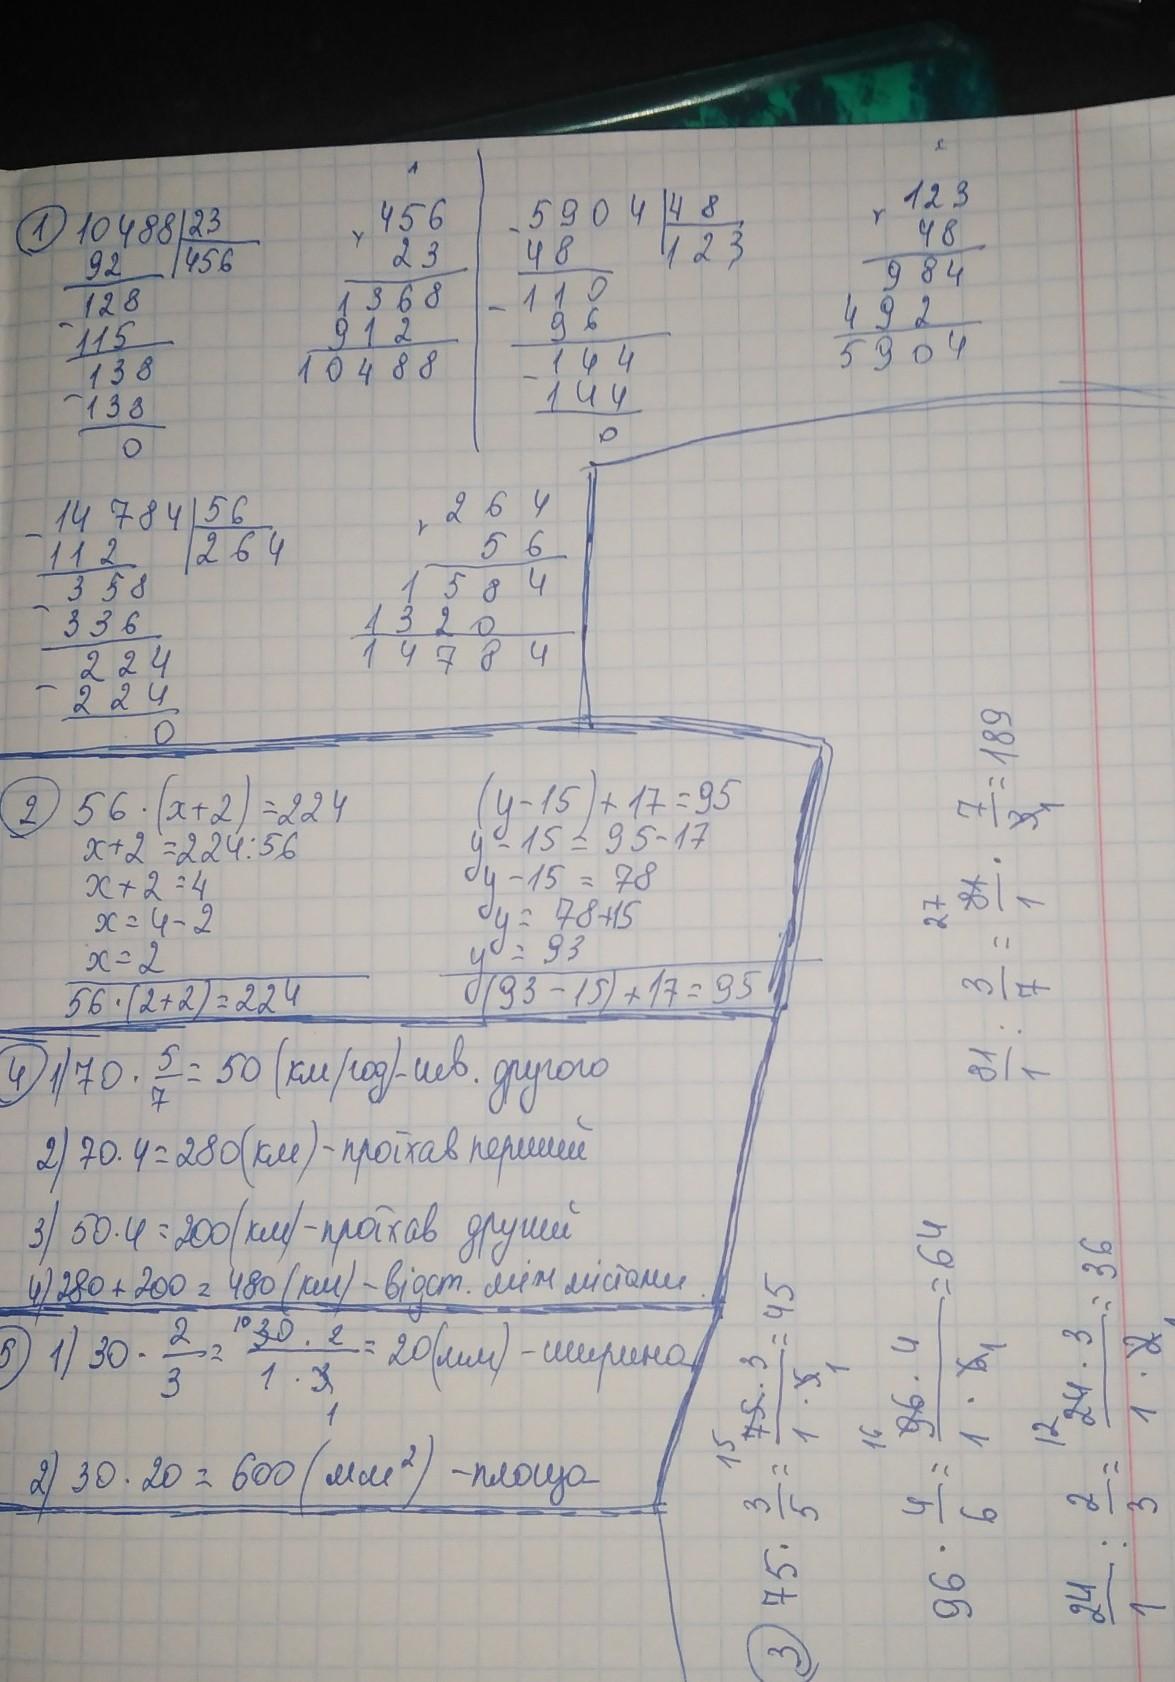 1) 10488 | 23
92 | 456
128
- 115
138
- 138
0
1
× 456
23
1368
912
10488
- 5904 | 48
48 | 123
- 110
96
- 144
144
0
× 123
48
984
492
5904
- 14784 | 56
112 | 264
358
- 336
224
- 224
0
× 264
56
1584
1320
14784
2) 56·(x+2)=224
x+2=224:56
x+2=4
x=4-2
x=2
56·(2+2)=224
(y-15)+17=95
y-15=95-17
y-15=78
y=78+15
y=93
(93-15)+17=95
4) 1) 70 · 5/7 = 50 (км/год)-шв. другого
2) 70·4=280(км)-проїхав перший
3) 50·4=200(км)-проїхав другий
4) 280+200=480(км)-відст. між містами.
5) 1) 30 · 2/3 = 10 30·2 / 1·3 1 = 20(мм)-ширина
2) 30·20=600(мм²)-площа
3) 75 · 3/5 = 15 75·3 / 1·5 1 = 45
96 · 4/6 = 16 96·4 / 1·6 1 = 64
24/1 : 2/3 = 12 24·3 / 1·2 1 = 36
81/1 : 3/7 = 27 81/1 · 7/3 1 = 189